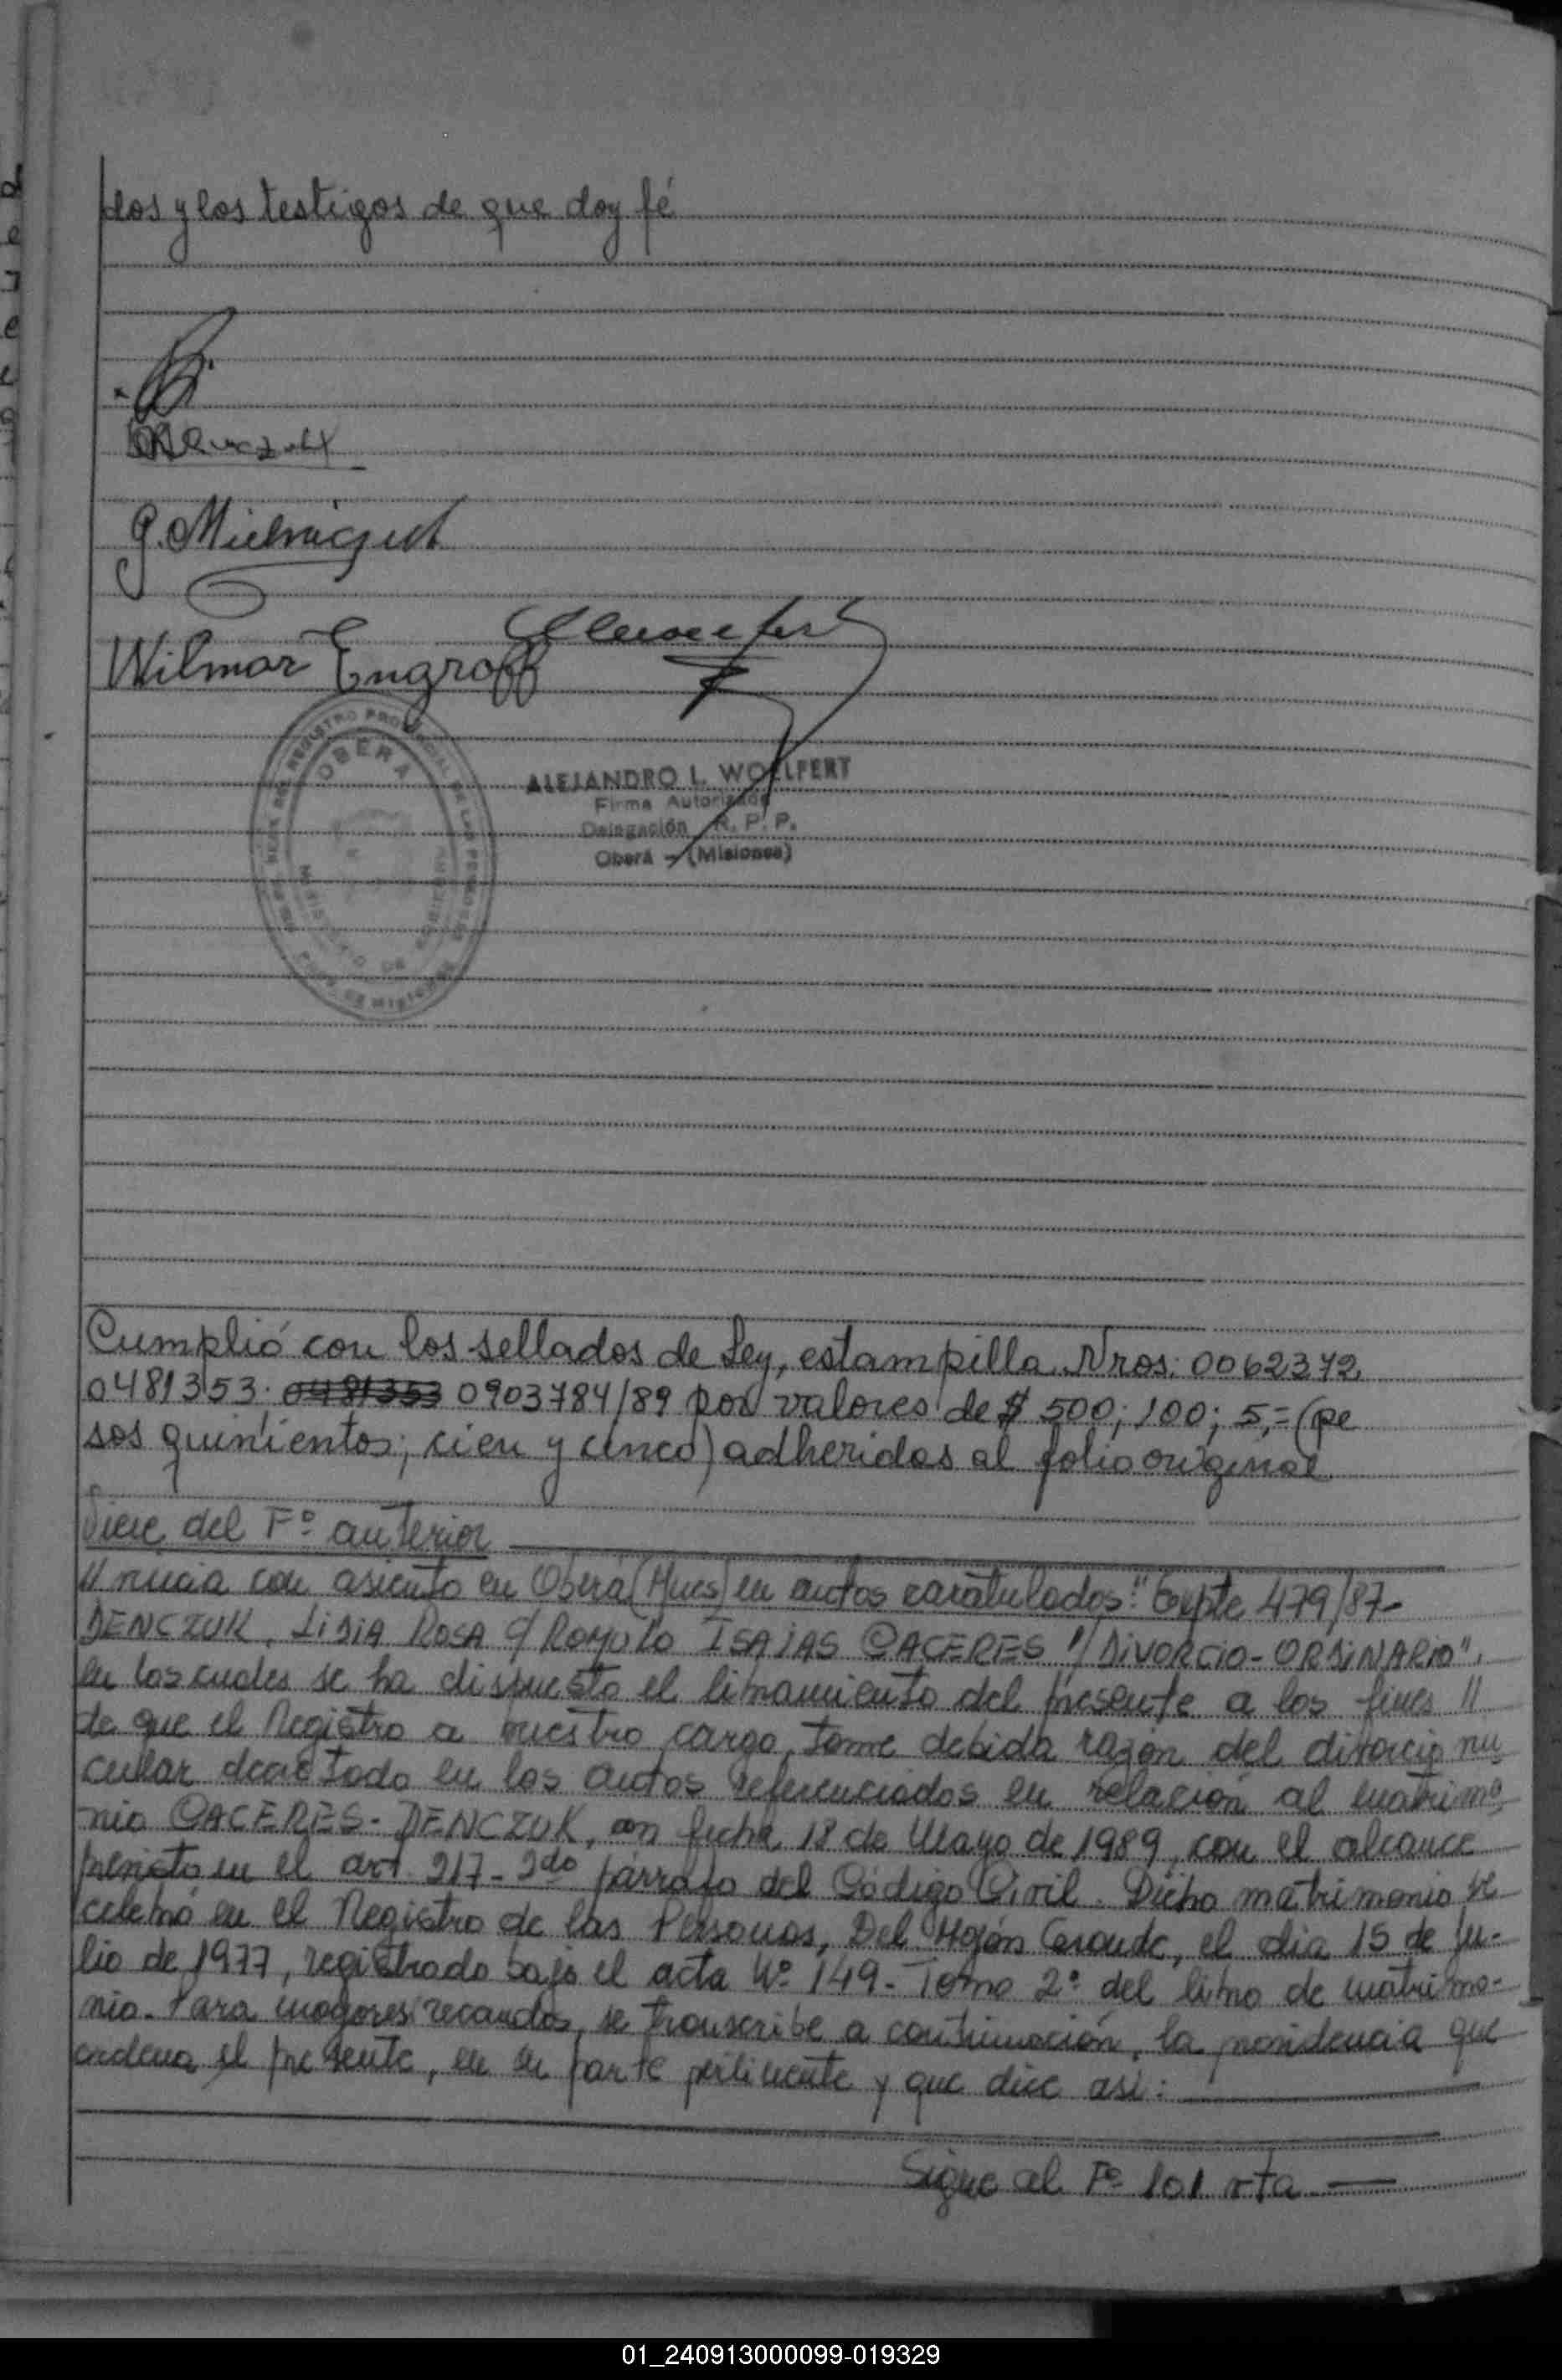 dos y los testigos de que doy fé
G. Mielniczuk
Wilmar Engroff
OBERA
ALEJANDRO L. WOELFERT
Firma Autorizada
Delegación R. P. P.
Oberá - (Misiones)
Cumplió con los sellados de Ley, estampilla Nros: 0062372,
0481353. 0481353 0903784/89 por valores de $ 500; 100; 5,= (pe
sos quinientos; cien y cinco) adheridos al folio original
Viene del Fº anterior
// nicia con asiento en Oberá (Mnes) en autos caratulados: "Expte 479/87-
DENCZUK, LIDIA ROSA c/ ROMULO ISAIAS CACERES s/ DIVORCIO-ORDINARIO",
en los cuales se ha dispuesto el libramiento del presente a los fines //
de que el Registro a vuestro cargo, tome debida razón del divorcio vin
cular decretado en los autos referenciados en relación al matrimo
nio CACERES-DENCZUK, con fecha 18 de Mayo de 1989, con el alcance
previsto en el art. 217-2do párrafo del Código Civil. Dicho matrimonio se
celebró en el Registro de las Personas, Del Mojón Grande, el dia 15 de Ju-
lio de 1977, registrado bajo el acta Nº 149- Tomo 2º del libro de matrimo-
nio. Para mayores recaudos, se transcribe a continuación, la providencia que
ordena el presente, en su parte pertinente y que dice asi:
Sigue al Fº 101 vta
01_240913000099-019329